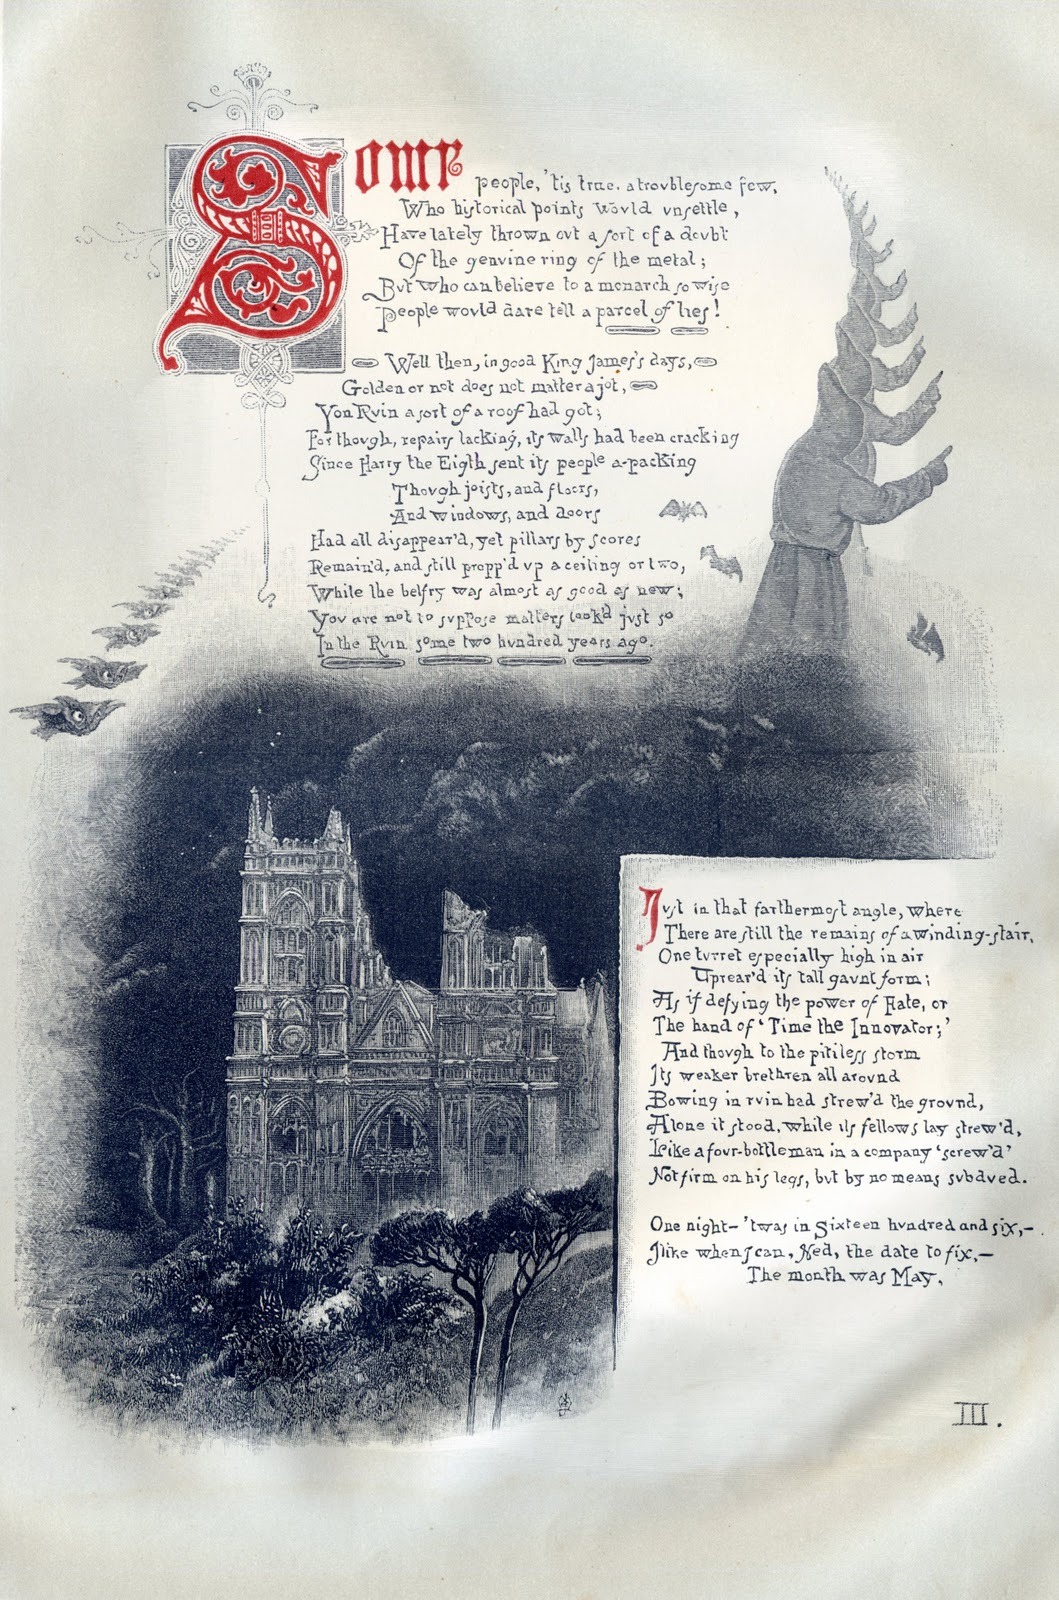 Some people, 'tis true, a troublesome few,
Who historical points would unsettle,
Have lately thrown out a sort of a doubt
Of the genuine ring of the metal;
But who can believe to a monarch so wise
People would dare tell a parcel of lies!
Well then, in good King James's days,
Golden or not does not matter a jot,
Yon Ruin a sort of a roof had got;
For though, repairs lacking, its walls had been cracking
Since Harry the Eigth sent its people a-packing
Though joists, and floors,
And windows, and doors
Had all disappear'd, yet pillars by scores
Remain'd, and still propp'd up a ceiling or two,
While the belfry was almost as good as new;
You are not to suppose matters look'd just so
In the Ruin some two hundred years ago.
Just in that farthermost angle, where
There are still the remains of a winding-stair,
One turret especially high in air
Uprear'd its tall gaunt form;
As if defying the power of Fate, or
The hand of 'Time the Innovator;'
And though to the pitiless storm
Its weaker brethren all around
Bowing in ruin had strew'd the ground,
Alone it stood, while its fellows lay strew'd,
Like a four-bottle man in a company 'screw'd'
Not firm on his legs, but by no means subdued.
One night– 'twas in Sixteen hundred and six,–
I like when I can, Ned, the date to fix,–
The month was May,
III.